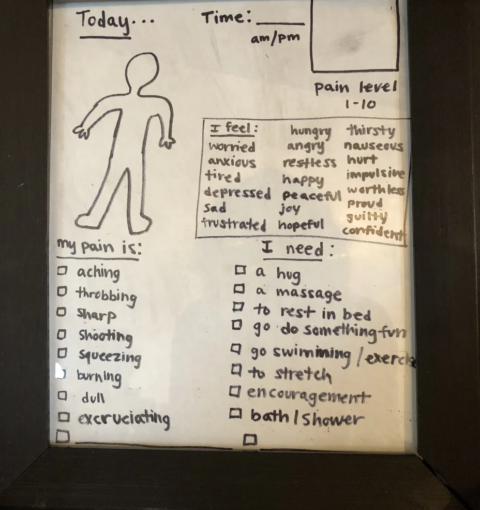 Today...
Time: ____
am/pm
pain level
1-10
I feel:
worried
anxious
tired
depressed
sad
frustrated
hungry
angry
restless
happy
peaceful
joy
hopeful
thirsty
nauseous
hurt
impulsive
worthless
proud
guilty
confident
my pain is:
aching
throbbing
sharp
shooting
squeezing
burning
dull
excruciating
I need:
a hug
a massage
to rest in bed
go do something fun
go swimming / exerci
to stretch
encouragement
bath / shower